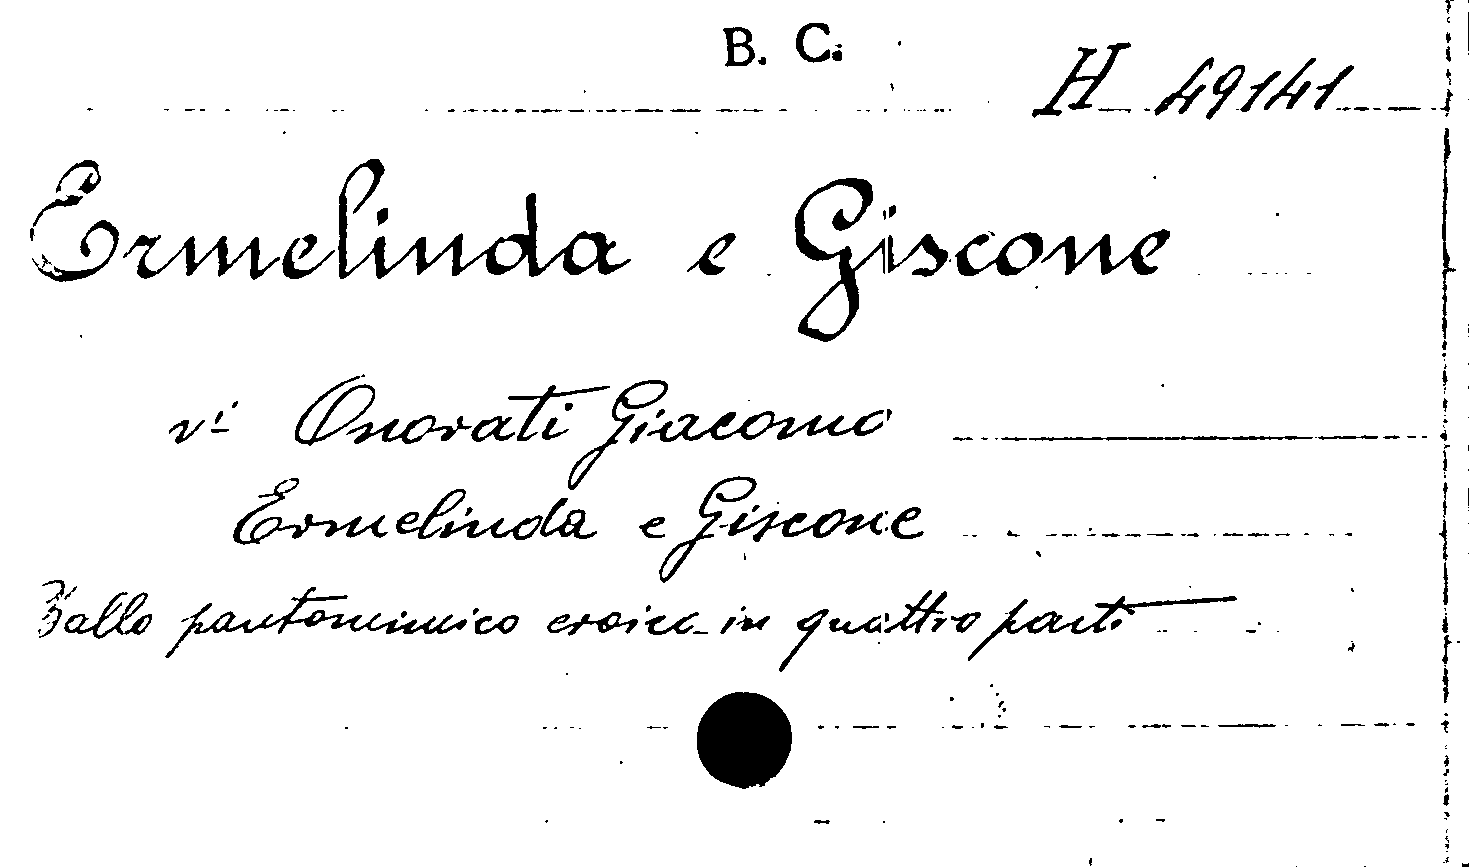 B. C.
H 49141
Ermelinda e Giscone
vi Onorati Giacomo
Ermelinda e Giscone
Ballo pantomimico eroico in quattro parti